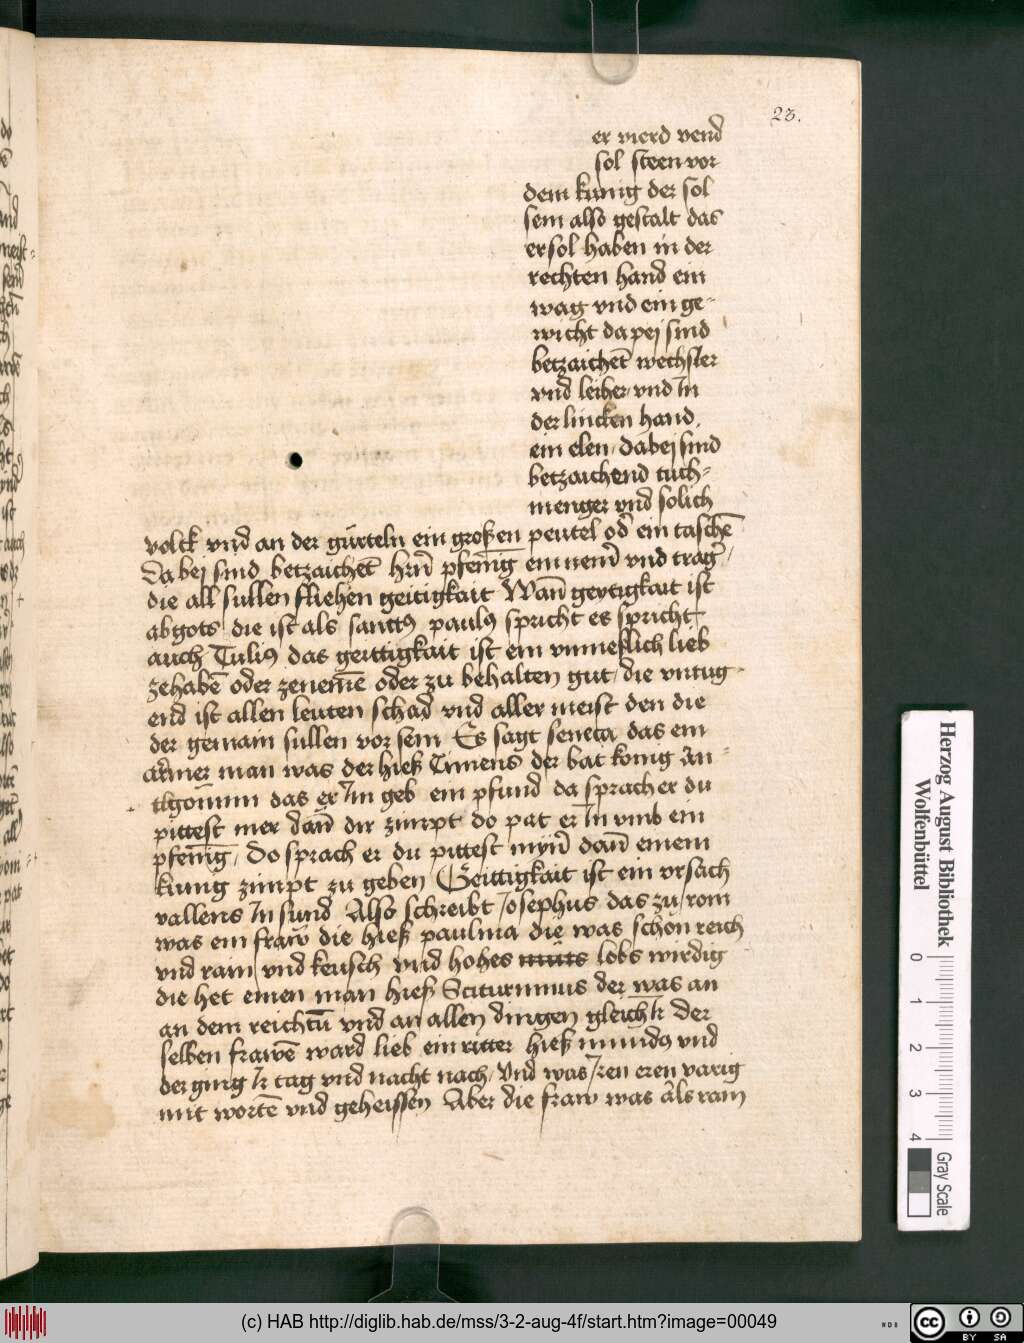 23.
er vierd vend
sol steen vor
dem kunig der sol
sein also gestalt das
er sol haben in der
rechten hand ein
wag vnd ein ge-
wicht da pej sind
betzaichet wechsler
vnd leiher vnd in
der lincken hand
ein elen dabej sind
betzaichend tuch-
menger vnd solich
volck vnd an der gürteln ein großen peutel od ein tasche
Da bej sind betzaichet pfenig einnem vnd trag
die all sullen fliehen geitigkait Wan geytigkait ist
abgots die ist als sanctus paulus spricht es spricht
auch Tulius das geittigkait ist ein vnmeßlich lieb
zehabe oder zeneme oder zu behalten gut die vntug-
end ist allen leuten schad vnd aller meist den die
der gemain sullen vor sein Es sagt seneca das ein
armer man was der hieß Timens der bat konig An-
tigonum das er im geb ein pfund da sprach er du
pittest mer dan dir zimpt do pat er in vmb ein
pfenig Do sprach er du pittest myn dan einem
kung zimpt zu geben Geittigkait ist ein vrsach
vallens in sund Also schreibt Josephus das zu rom
was ein fraw die hieß paulina die was schön reich
vnd rain vnd keusch vnd hohes lobs wirdig
die het einen man hieß Sciturninus der was an
an dem reichtu vnd an allen dingen gleich Der
selben frawe ward lieb ein ritter hieß mundus vnd
der ging ir tag vnd nacht nach vnd was iren eren varig
mit worte vnd geheissen Aber die fraw was als rain
Herzog August Bibliothek
Wolfenbüttel
0 1 2 3 4
Gray Scale
(c) HAB http://diglib.hab.de/mss/3-2-aug-4f/start.htm?image=00049
WDB
cc BY SA